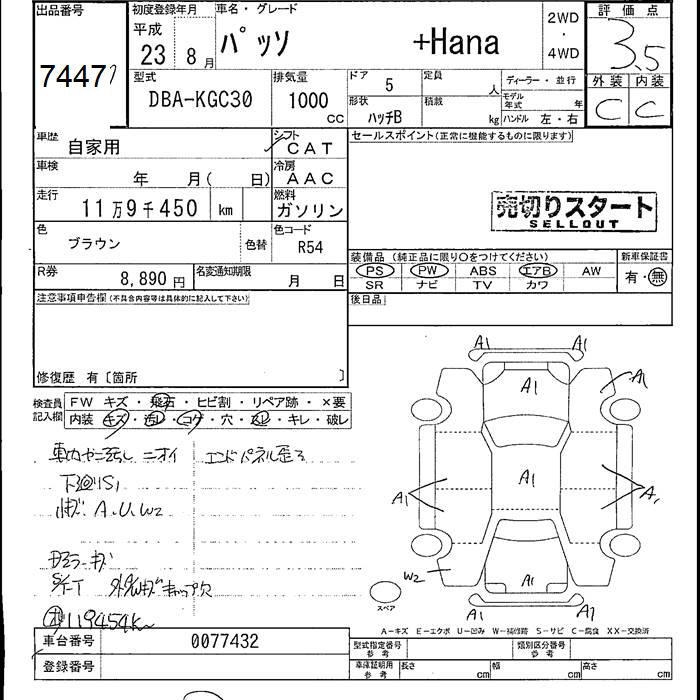 出品番号 初度登録年月 車名・グレード 2WD・4WD 評価点
7447
平成 23年 8月 パッソ +Hana 3.5
型式 排気量 ドア 5 定員 人 ディーラー・並行 外装 内装
DBA-KGC30 1000 CC 形状 ハッチB 積載 kg モデル年式 年 ハンドル 左・右 C C
車歴 自家用 シフト CAT セールスポイント(正常に機能するものに限ります)
車検 年 月( 日) 冷房 AAC
走行 11万9千450 km 燃料 ガソリン
売切りスタート
SELLOUT
色 ブラウン 色替 色コード R54
装備品 (純正品に限り○をつけてください) 新車保証書
R券 8,890円 名変通知期限 月 日 PS PW ABS エアB AW 有・無
SR ナビ TV カワ
注意事項申告欄(不具合内容等は具体的に記入して下さい) 後日品
修復歴 有〔箇所 〕
検査員記入欄 FW キズ・飛石・ヒビ割・リペア跡・×要
内装 キズ・汚レ・コゲ・穴・ スレ・キレ・破レ
車内ヤニ汚レ ニオイ エンドパネル歪ミ
下廻リS1
A.U.W2
ドアミラーキズ
キャップ欠
119454km
A1 A1
A1 A1
A1 A1 A1
W2 A1
A1
スペア
A-キズ E-エクボ U-凹み W-補修跡 S-サビ C-腐食 XX-交換済
車台番号 0077432 型式指定番号 参考 類別区分番号 参考
登録番号 車庫証明用 参考 長さ cm 幅 cm 高さ cm